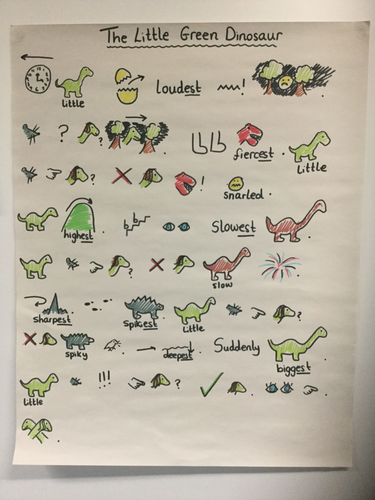 The Little Green Dinosaur
little loudest !
? fiercest . Little
? ! snarled .
highest Slowest .
? slow .
sharpest . . Spikiest Little ? .
spiky . deepest . Suddenly biggest .
Little !!! ? .
.